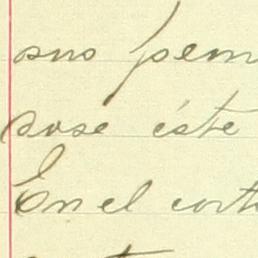 sus pem
sose éste
En el cort